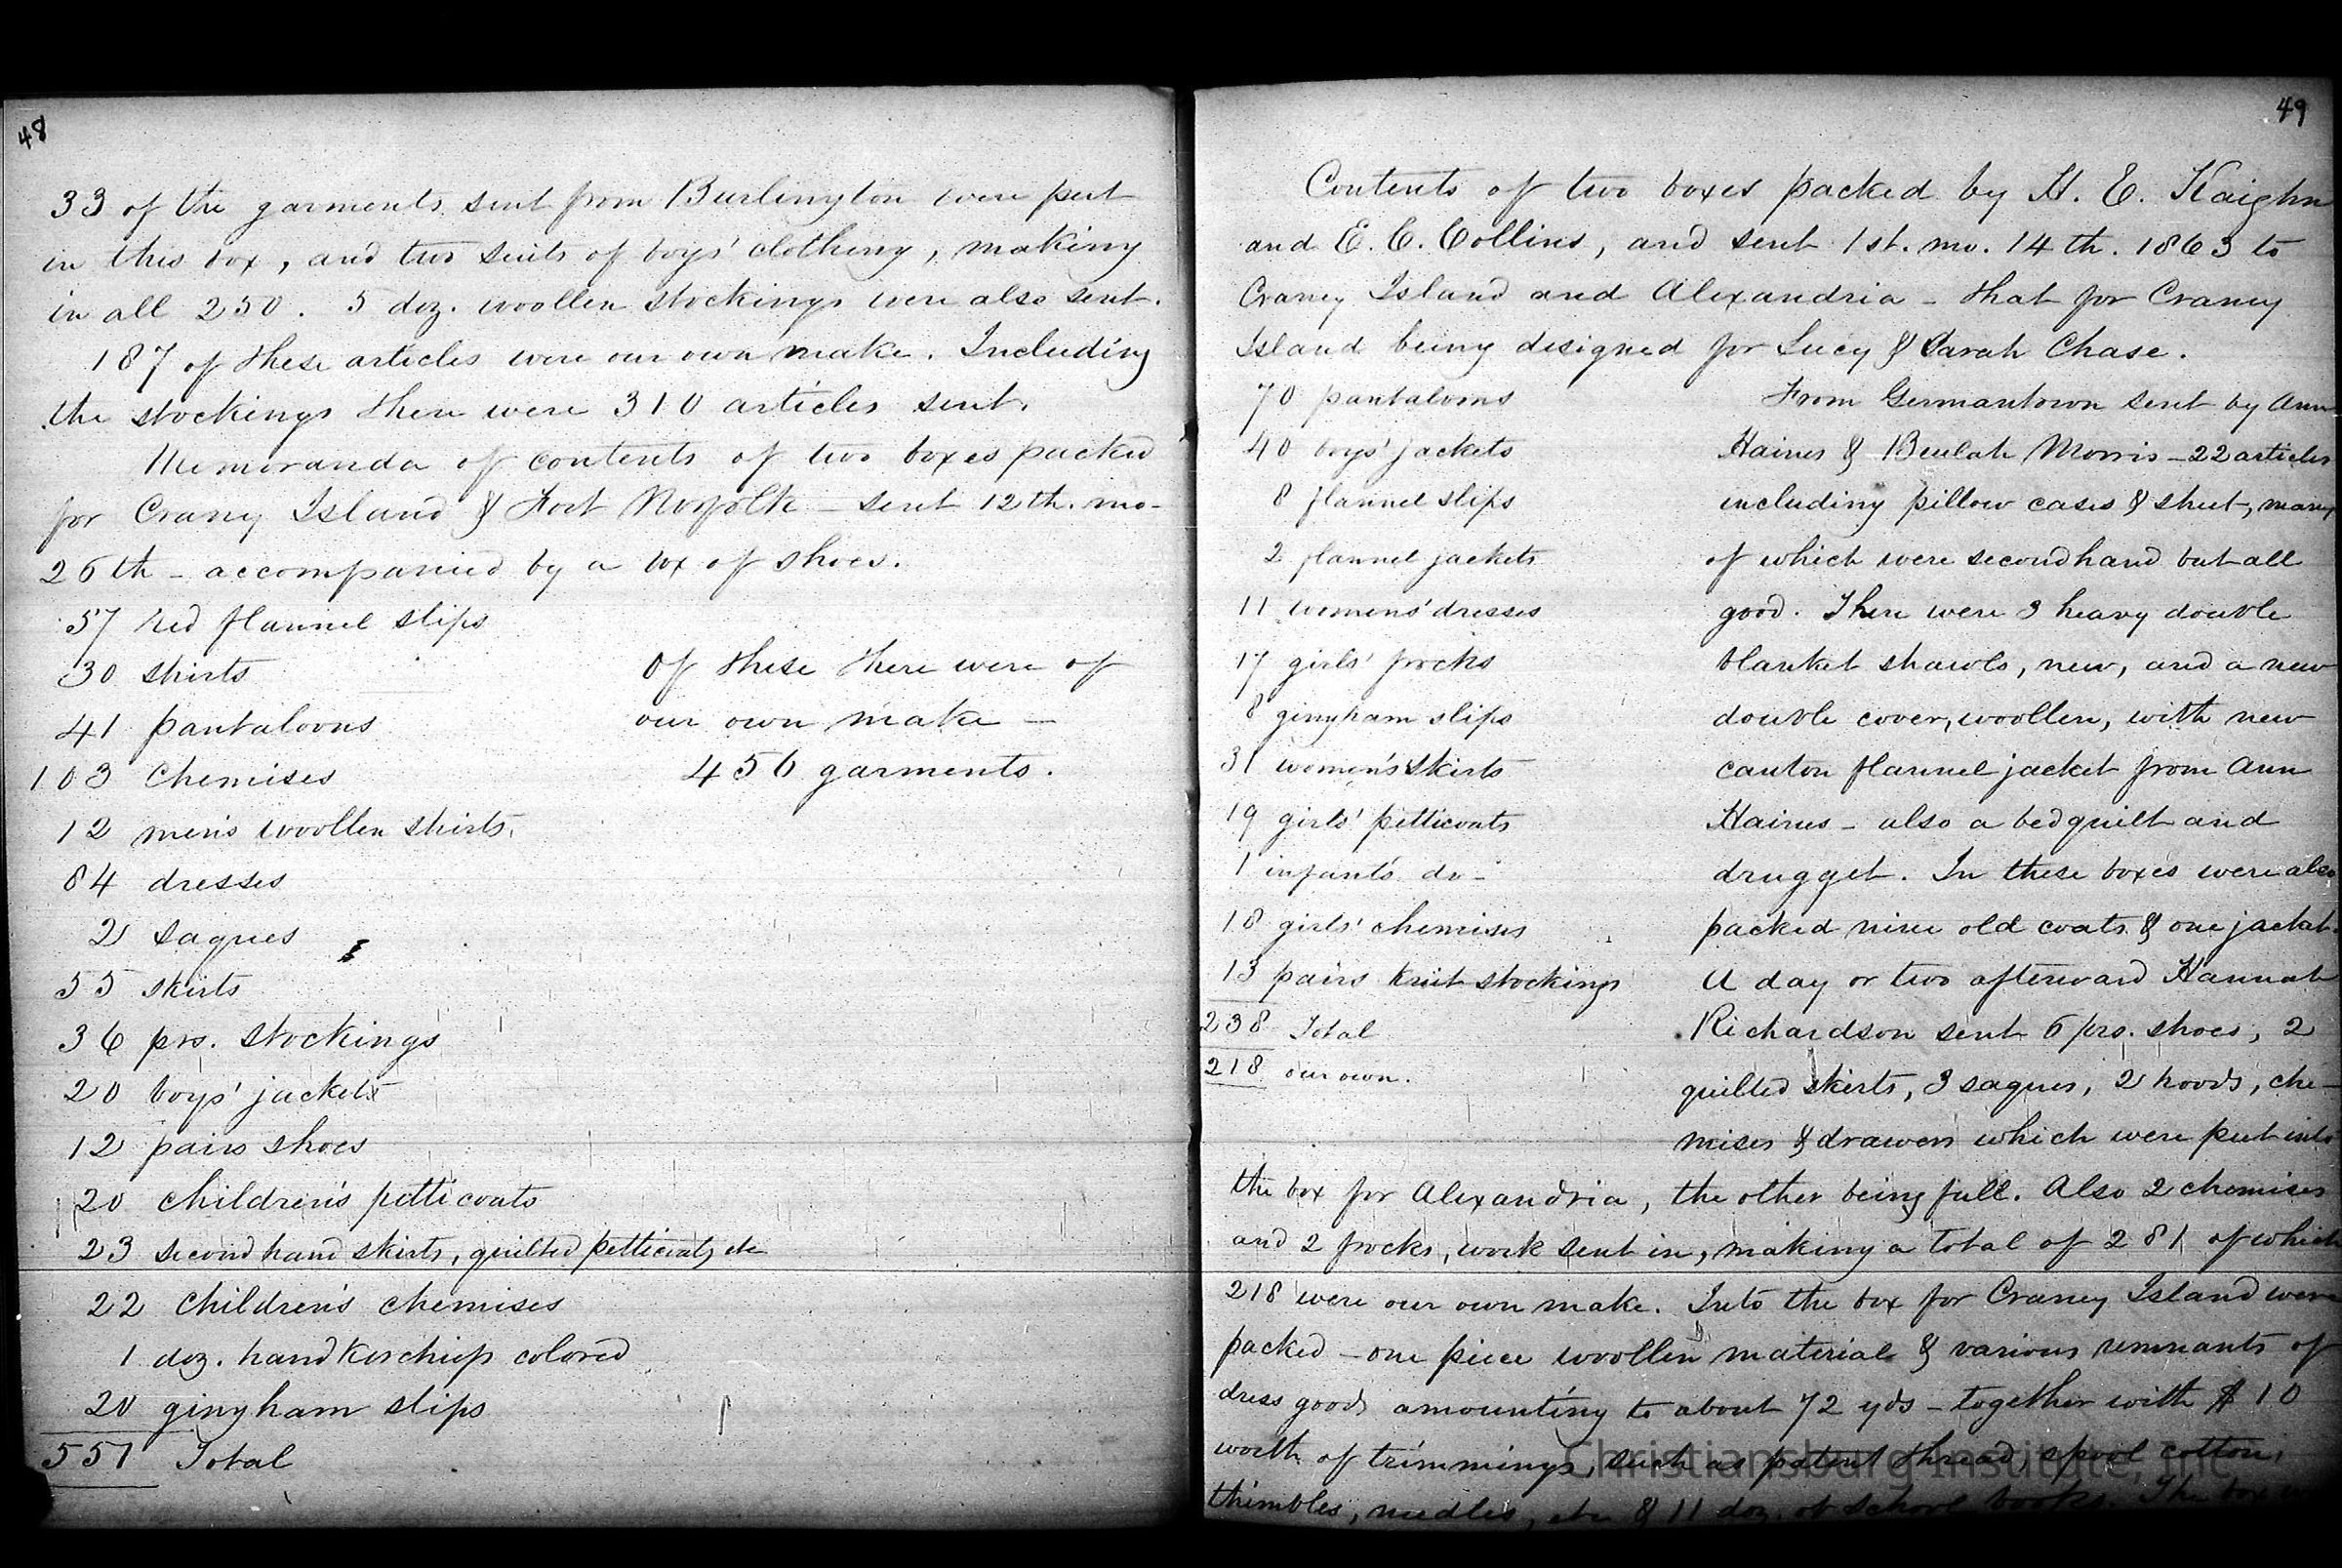 48
33 of the garments sent from Burlington were put
in this box, and two suits of boys' clothing, making
in all 250. 5 doz. woollen stockings were also sent.
187 of these articles were our own make. Including
the stockings there were 310 articles sent.
Memoranda of contents of two boxes packed
for Crany Island & Fort Norfolk - sent 12th. mo-
26th - accompanied by a box of shoes.
57 red flannel slips
30 shirts
41 pantaloons
103 Chemises
12 men's woollen shirts.
84 dresses
2 saques
55 skirts
36 prs. stockings
20 boys' jackets
12 pairs shoes
20 children's petticoats
23 second hand skirts, quilted petticoats, etc
22 Children's chemises
1 doz. handkerchiefs colored
20 gingham slips
551 Total
Of these there were of
our own make -
456 garments.
49
Contents of two boxes packed by H. E. Kaighn
and E. C. Collins, and sent 1st. mo. 14th. 1863 to
Craney Island and Alexandria - that for Craney
Island being designed for Lucy & Sarah Chase.
70 pantaloons
40 boys' jackets
8 flannel slips
2 flannel jackets
11 womens' dresses
17 girls' frocks
8 gingham slips
31 women's skirts
19 girls' petticoats
1 infant's do-
18 girls' chemises
13 pairs knit stockings
238 Total
218 our own.
From Germantown sent by Ann
Haines & Beulah Morris - 22 articles
including pillow cases & sheet, many
of which were secondhand but all
good. There were 3 heavy double
blanket shawls, new, and a new
double cover, woollen, with new
canton flannel jacket from Ann
Haines - also a bedquilt and
drugget. In these boxes were also
packed nine old coats & one jacket.
A day or two afterward Hannah
Richardson sent 6 prs. shoes, 2
quilted skirts, 3 saques, 2 hoods, che-
mises & drawers which were put into
the box for Alexandria, the other being full. Also 2 chemises
and 2 frocks, work sent in, making a total of 281 of which
218 were our own make. Into the box for Craney Island were
packed - one piece woollen material & various remnants of
dress goods amounting to about 72 yds - together with $10
worth of trimmings, such as patent thread, spool cotton,
thimbles, needles, etc & 11 doz. of school books. The box
Christiansburg Institute, Inc